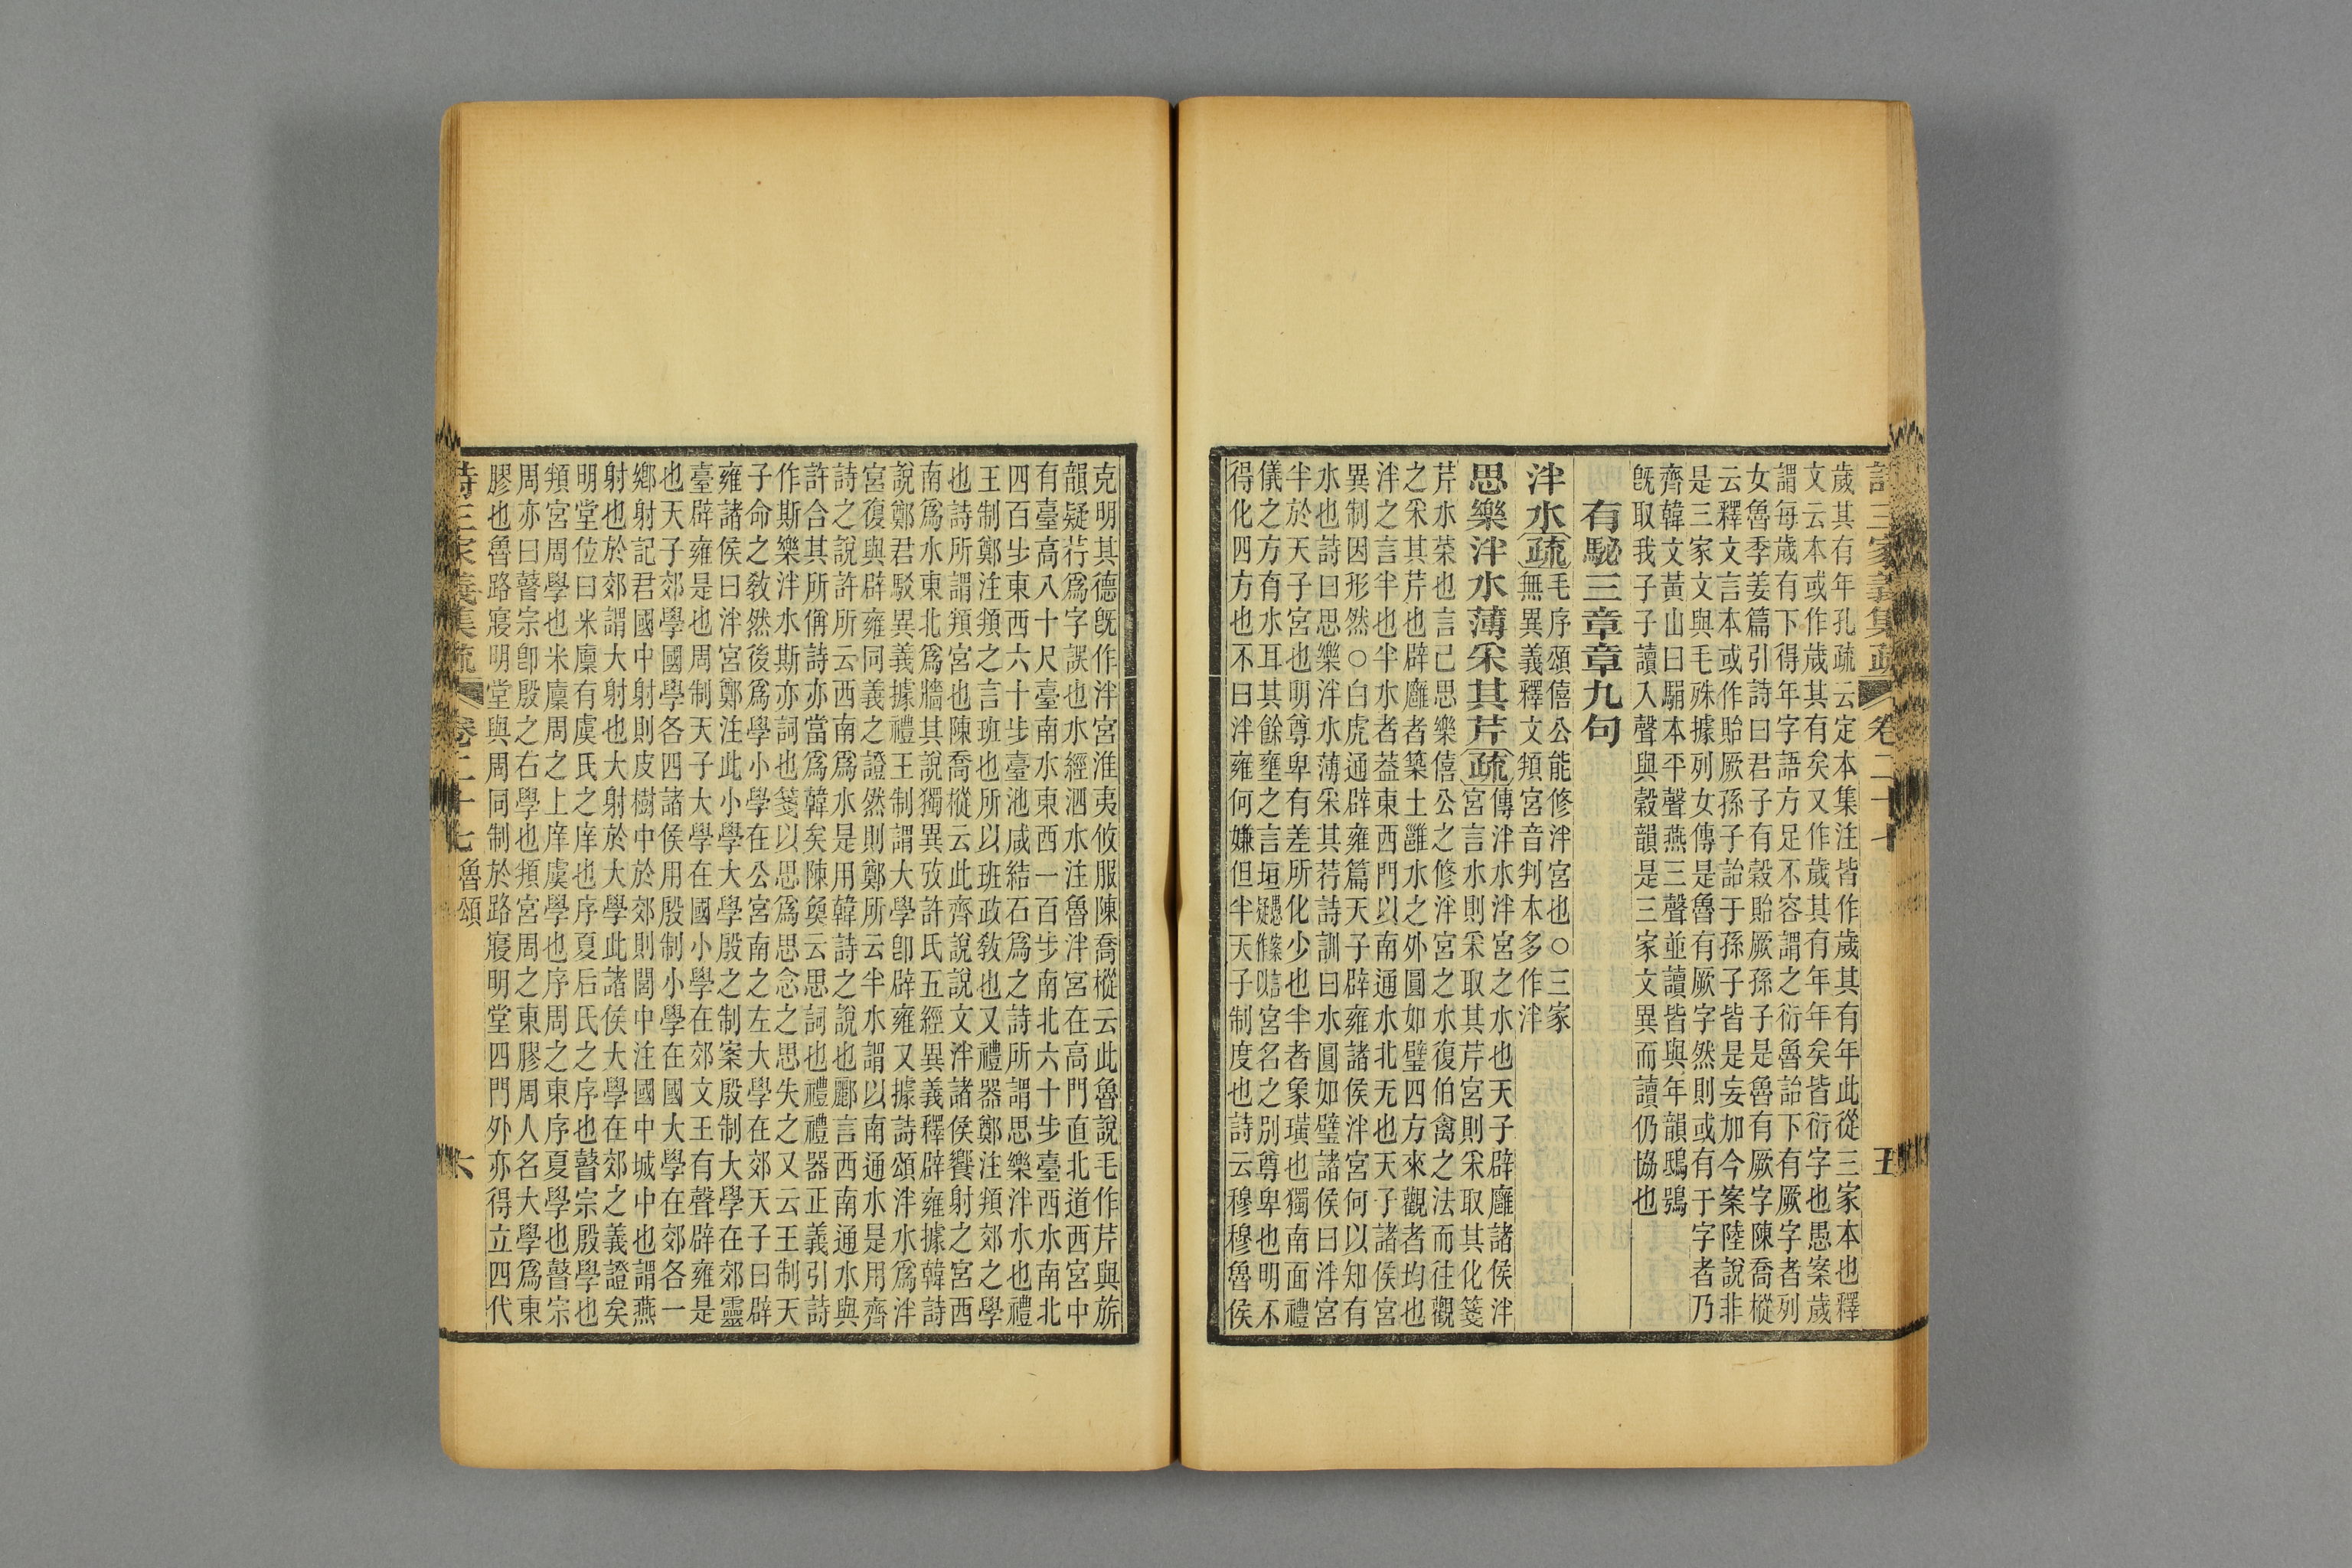 詩三家義集疏 卷二十七 五
歲其有年孔疏云定本集注皆作歲其有年此從三家本也釋
文云本或作歲其有矣又作歲其有年年矣皆衍字也愚案歲
謂每歲有下得年字語方足不容謂之衍魯詒下有厥字者列
女魯季姜篇引詩曰君子有穀貽厥孫子是魯有厥字陳喬樅
云釋文言本或作貽厥孫子詒于孫子皆是妄加今案陸說非
是三家文與毛殊據列女傳是魯有厥字然則或有于字者乃
齊韓文黃山曰駽本平聲燕三聲並讀皆與年韻鴟鴞
旣取我子子讀入聲與穀韻是三家文異而讀仍協也
有駜三章章九句
泮水疏毛序頌僖公能修泮宮也○三家
無異義釋文頖宮音判本多作泮
思樂泮水薄采其芹疏傳泮水泮宮之水也天子辟廱諸侯泮
宮言水則采取其芹宮則采取其化箋
芹水菜也言己思樂僖公之修泮宮之水復伯禽之法而往觀
之采其芹也辟廱者築土雝水之外圓如璧四方來觀者均也
泮之言半也半水者葢東西門以南通水北无也天子諸侯宮
異制因形然○白虎通辟雍篇天子辟雍諸侯泮宮何以知有
水也詩曰思樂泮水薄采其荇詩訓曰水圓如璧諸侯曰泮宮
半於天子宮也明尊卑有差所化少也半者象璜也獨南面禮
儀之方有水耳其餘壅之言垣宮名之別尊卑也明不
得化四方也不曰泮雍何嫌但半天子制度也詩云穆穆魯侯
克明其德旣作泮宮淮夷攸服陳喬樅云此魯說毛作芹與旂
韻疑荇爲字誤也水經泗水注魯泮宮在高門直北道西宮中
有臺高八十尺臺南水東西一百步南北六十步臺西水南北
四百步東西六十步臺池咸結石爲之詩所謂思樂泮水也禮
王制鄭注頖之言班也所以班政敎也又禮器鄭注頖郊之學
也詩所謂頖宮也陳喬樅云此齊說說文泮諸侯饗射之宮西
南爲水東北爲牆其說獨異攷許氏五經異義釋辟雍據韓詩
說鄭君駁異義據禮王制謂大學卽辟雍又據詩頌泮水爲泮
宮復與辟雍同義之證然則鄭所云半水謂以南通水是用齊
詩之說許所云西南爲水是用韓詩之說也酈言西南通水與
許合其所偁詩亦當爲韓矣陳奐云思詞也禮禮器正義引詩
作斯樂泮水斯亦詞也箋以思爲思念之思失之又云王制天
子命之敎然後爲學小學在公宮南之左大學在郊天子曰辟
雍諸侯曰泮宮鄭注此小學大學殷之制案殷制大學在郊靈
臺辟雍是也周制天子大學在國小學在郊文王有聲辟雍是
也天子郊學國學各四諸侯用殷制小學在國大學在郊各一
鄉射記君國中射則皮樹中於郊則閭中注國中城中也謂燕
射也於郊謂大射也大射於大學此諸侯大學在郊之義證矣
明堂位曰米廩有虞氏之庠也序夏后氏之序也瞽宗殷學也
頖宮周學也米廩周之上庠虞學也序周之東序夏學也瞽宗
周亦曰瞽宗卽殷之右學也頖宮周之東膠周人名大學爲東
膠也魯路寢明堂與周同制於路寢明堂四門外亦得立四代
詩三家義集疏 卷二十七 魯頌 六